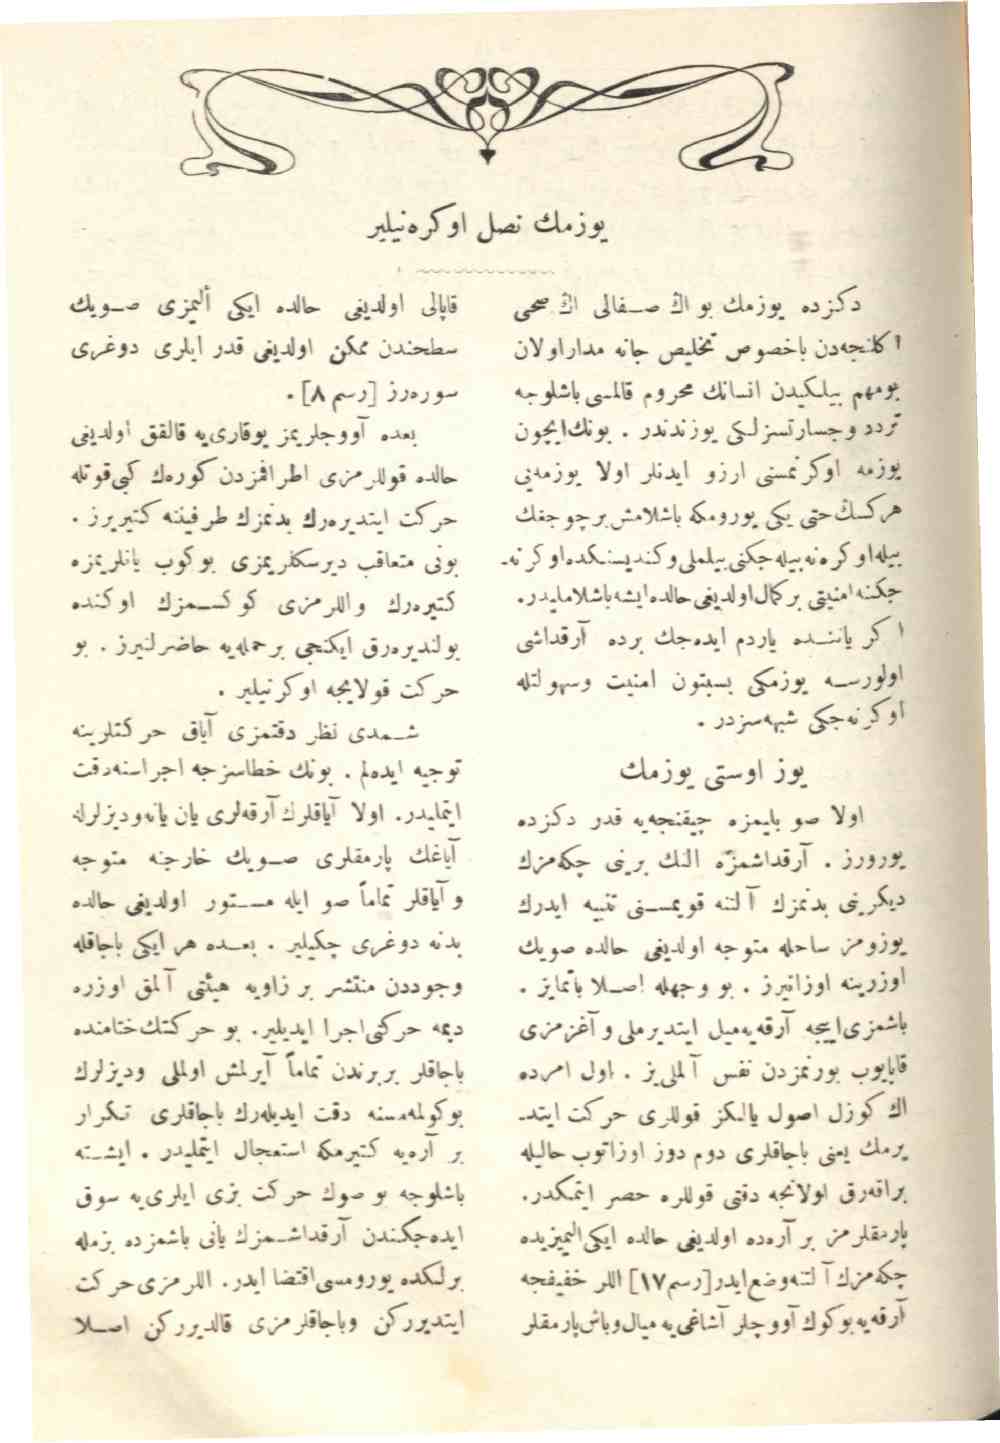 يوزمك نصل اوكره‌نيلير
دكزده يوزمك بو اڭ صــفالى اڭ صحى
اكلنجه‌دن باخصوص تخليص جانه مداراولان
بومهم بيلكيدن انسانك محروم قالمسى باشلوجه
تردد وجسارتسزلكى يوزندندر . بونك‌ايچون
يوزمه اوكرنمسنى ارزو ايدنلر اولا يوزمه‌نى
هركسڭ‌حتى يكى يورومكه باشلامش‌برچوجغك
بيله‌اوكره‌نه‌بيله‌جكنى‌بيلملى‌وكنديسنكده‌اوكرنه‌ـ
جكنه‌امنيتى بركمال‌اولديغى‌حالده‌ايشه‌باشلامليدر.
اكر ياننــده ياردم ايده‌جك برده آرقداشى
اولورســه يوزمكى بسبتون امنيت وسهولتله
اوكرنه‌جكى شبهه‌سزدر .
يوز اوستى يوزمك
اولا صو بليمزه چيقنجه‌يه قدر دكزده
يورورز . آرقداشمزه النك برينى چكه‌مزك
ديكرينى بدنمزك آلتنه قويمســنى تنبيه ايدرك
يوزومز ساحله متوجه اولديغى حالده صويك
اوزرينه اوزانيرز . بو وجهله اصــلا باتمايز .
باشمزى‌اييجه آرقه‌يه‌ميل ايتديرملى و آغزمزى
قاپايوب بورنمزدن نفس آلملى‌يز . اول امرده
اك كوزل اصول يالكز قوللرى حركت ايتد‌ـ
يرمك يعنى باجاقلرى دوم دوز اوزاتوب حاليله
براقه‌رق اولانجه دقتى قوللره حصر ايتمكدر.
پارمقلرمز بر آره‌ده اولديغى حالده ايكى‌اليميزيده
چكه‌مزك آلتنه‌وضع‌ايدر[رسم١٧] اللر خفيفجه
آرقه‌يه‌بوكوك آووچلر آشاغى‌يه ميال‌وباش‌پارمقلر
قاپالى اولديغى حالده ايكى ألميزى صــويك
سطحندن ممكن اولديغى قدر ايلرى دوغرى
سوره‌رز [رسم ٨].
بعده آووجلريمز يوقارى‌يه قالقق اولديغى
حالده قوللرمزى اطرافمزدن كوره‌ك كبى‌قوتله
حركت ايتديره‌رك بدنمزك طرفيننه كتيريرز .
بونى متعاقب ديرسكلريمزى بوكوب يانلريمزه
كتيره‌رك واللرمزى كوكســمزك اوكنده
بولنديره‌رق ايكنجى برحمله‌يه حاضرلنيرز . بو
حركت قولايجه اوكرنيلير .
شــمدى نظر دقتمزى آياق حركتلرينه
توجيه ايده‌لم . بونك خطاسزجه اجراسنه‌دقت
ايتمليدر. اولا آياقلرك آرقه‌لرى يان يانه‌وديزلرله
آياغك پارمقلرى صــويك خارجنه متوجه
و آياقلر تماماً صو ايله مســتور اولديغى حالده
بدنه دوغرى چكيلير . بعــده هر ايكى باجاقله
وجوددن منتشر بر زاويه هيئتى آلمق اوزره
ديمه حركتى‌اجرا ايديلير. بو حركتك‌ختامنده
باجاقلر بربرندن تماماً آيرلمش اولملى وديزلرك
بوكولمه‌مسنه دقت ايديله‌رك باجاقلرى تكرار
بر آره‌يه كتيرمكه استعجال ايتمليدر . ايشــته
باشلوجه بو صوك حركت بزى ايلرى‌يه سوق
ايده‌جكندن آرقداشــمزك يانى باشمزده بزمله
برلكده يورومسى‌اقتضا ايدر. اللرمزى حركت
ايتديرركن وباجاقلرمزى قالديرركن اصــلا